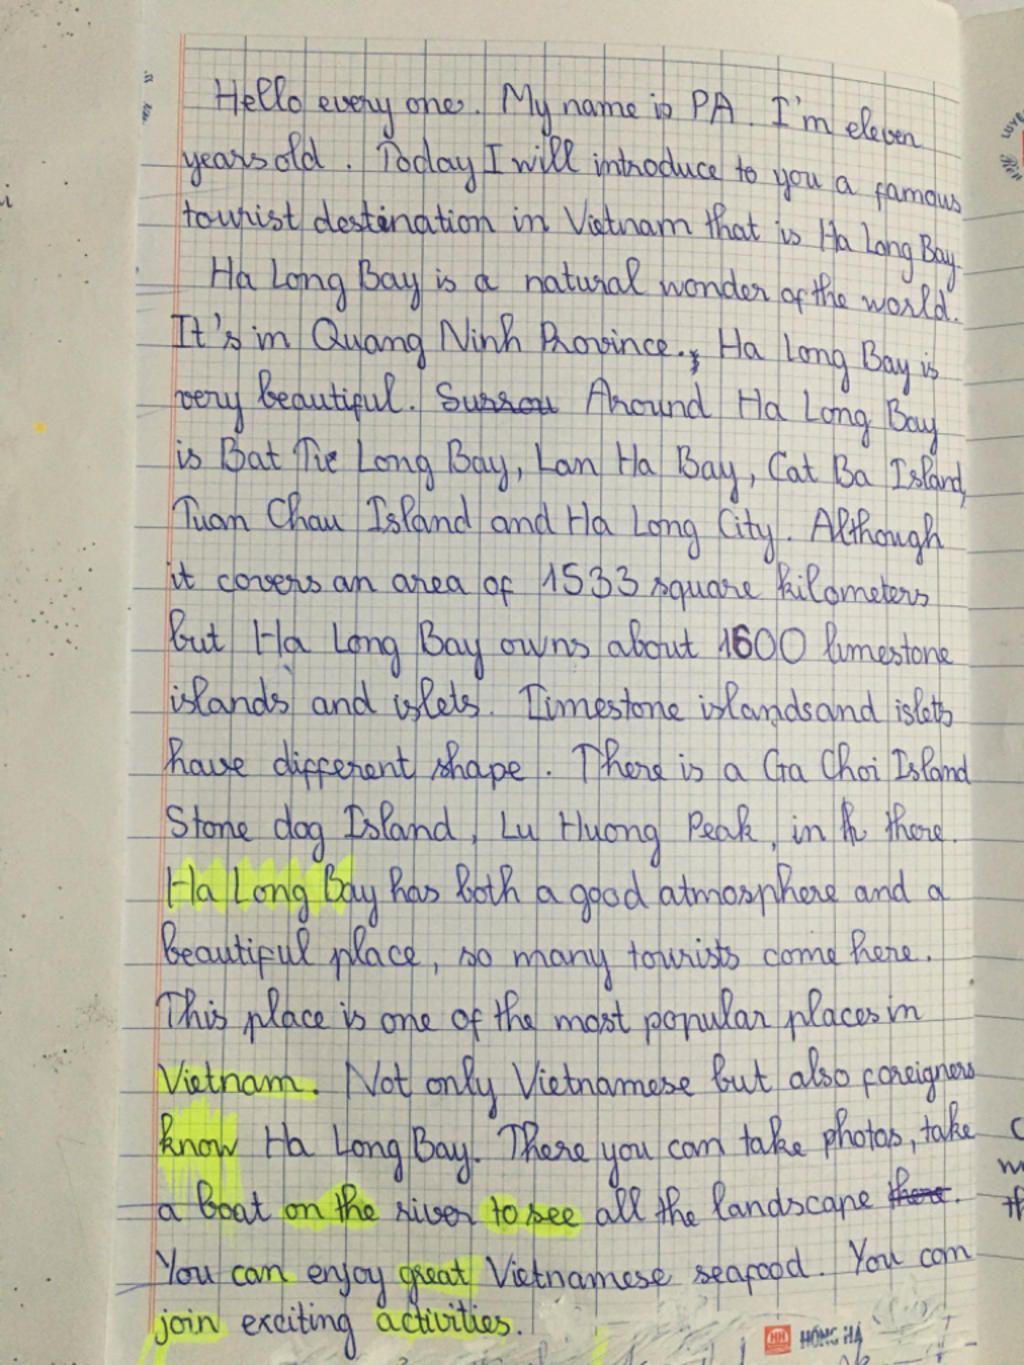 Hello every one. My name is PA. I'm eleven
years old. Today I will introduce to you a famous
tourist destination in Vietnam that is Ha Long Bay.
Ha Long Bay is a natural wonder of the world.
It's in Quang Ninh Province. Ha Long Bay is
very beautiful. Surrou Around Ha Long Bay
is Bat Tie Long Bay, Lan Ha Bay, Cat Ba Island,
Tuan Chau Island and Ha Long City. Although
it covers an area of 1533 square kilometers
but Ha Long Bay owns about 1600 limestone
islands and islets. Limestone islands and islets
have different shape. There is a Ga Choi Island
Stone dog Island, Lu Huong Peak, in there.
Ha Long Bay has both a good atmosphere and a
beautiful place, so many tourists come here.
This place is one of the most popular places in
Vietnam. Not only Vietnamese but also foreigners
know Ha Long Bay. There you can take photos, take
a boat on the river to see all the landscape there.
You can enjoy great Vietnamese seafood. You can
join exciting activities.
HH HỒNG HÀ